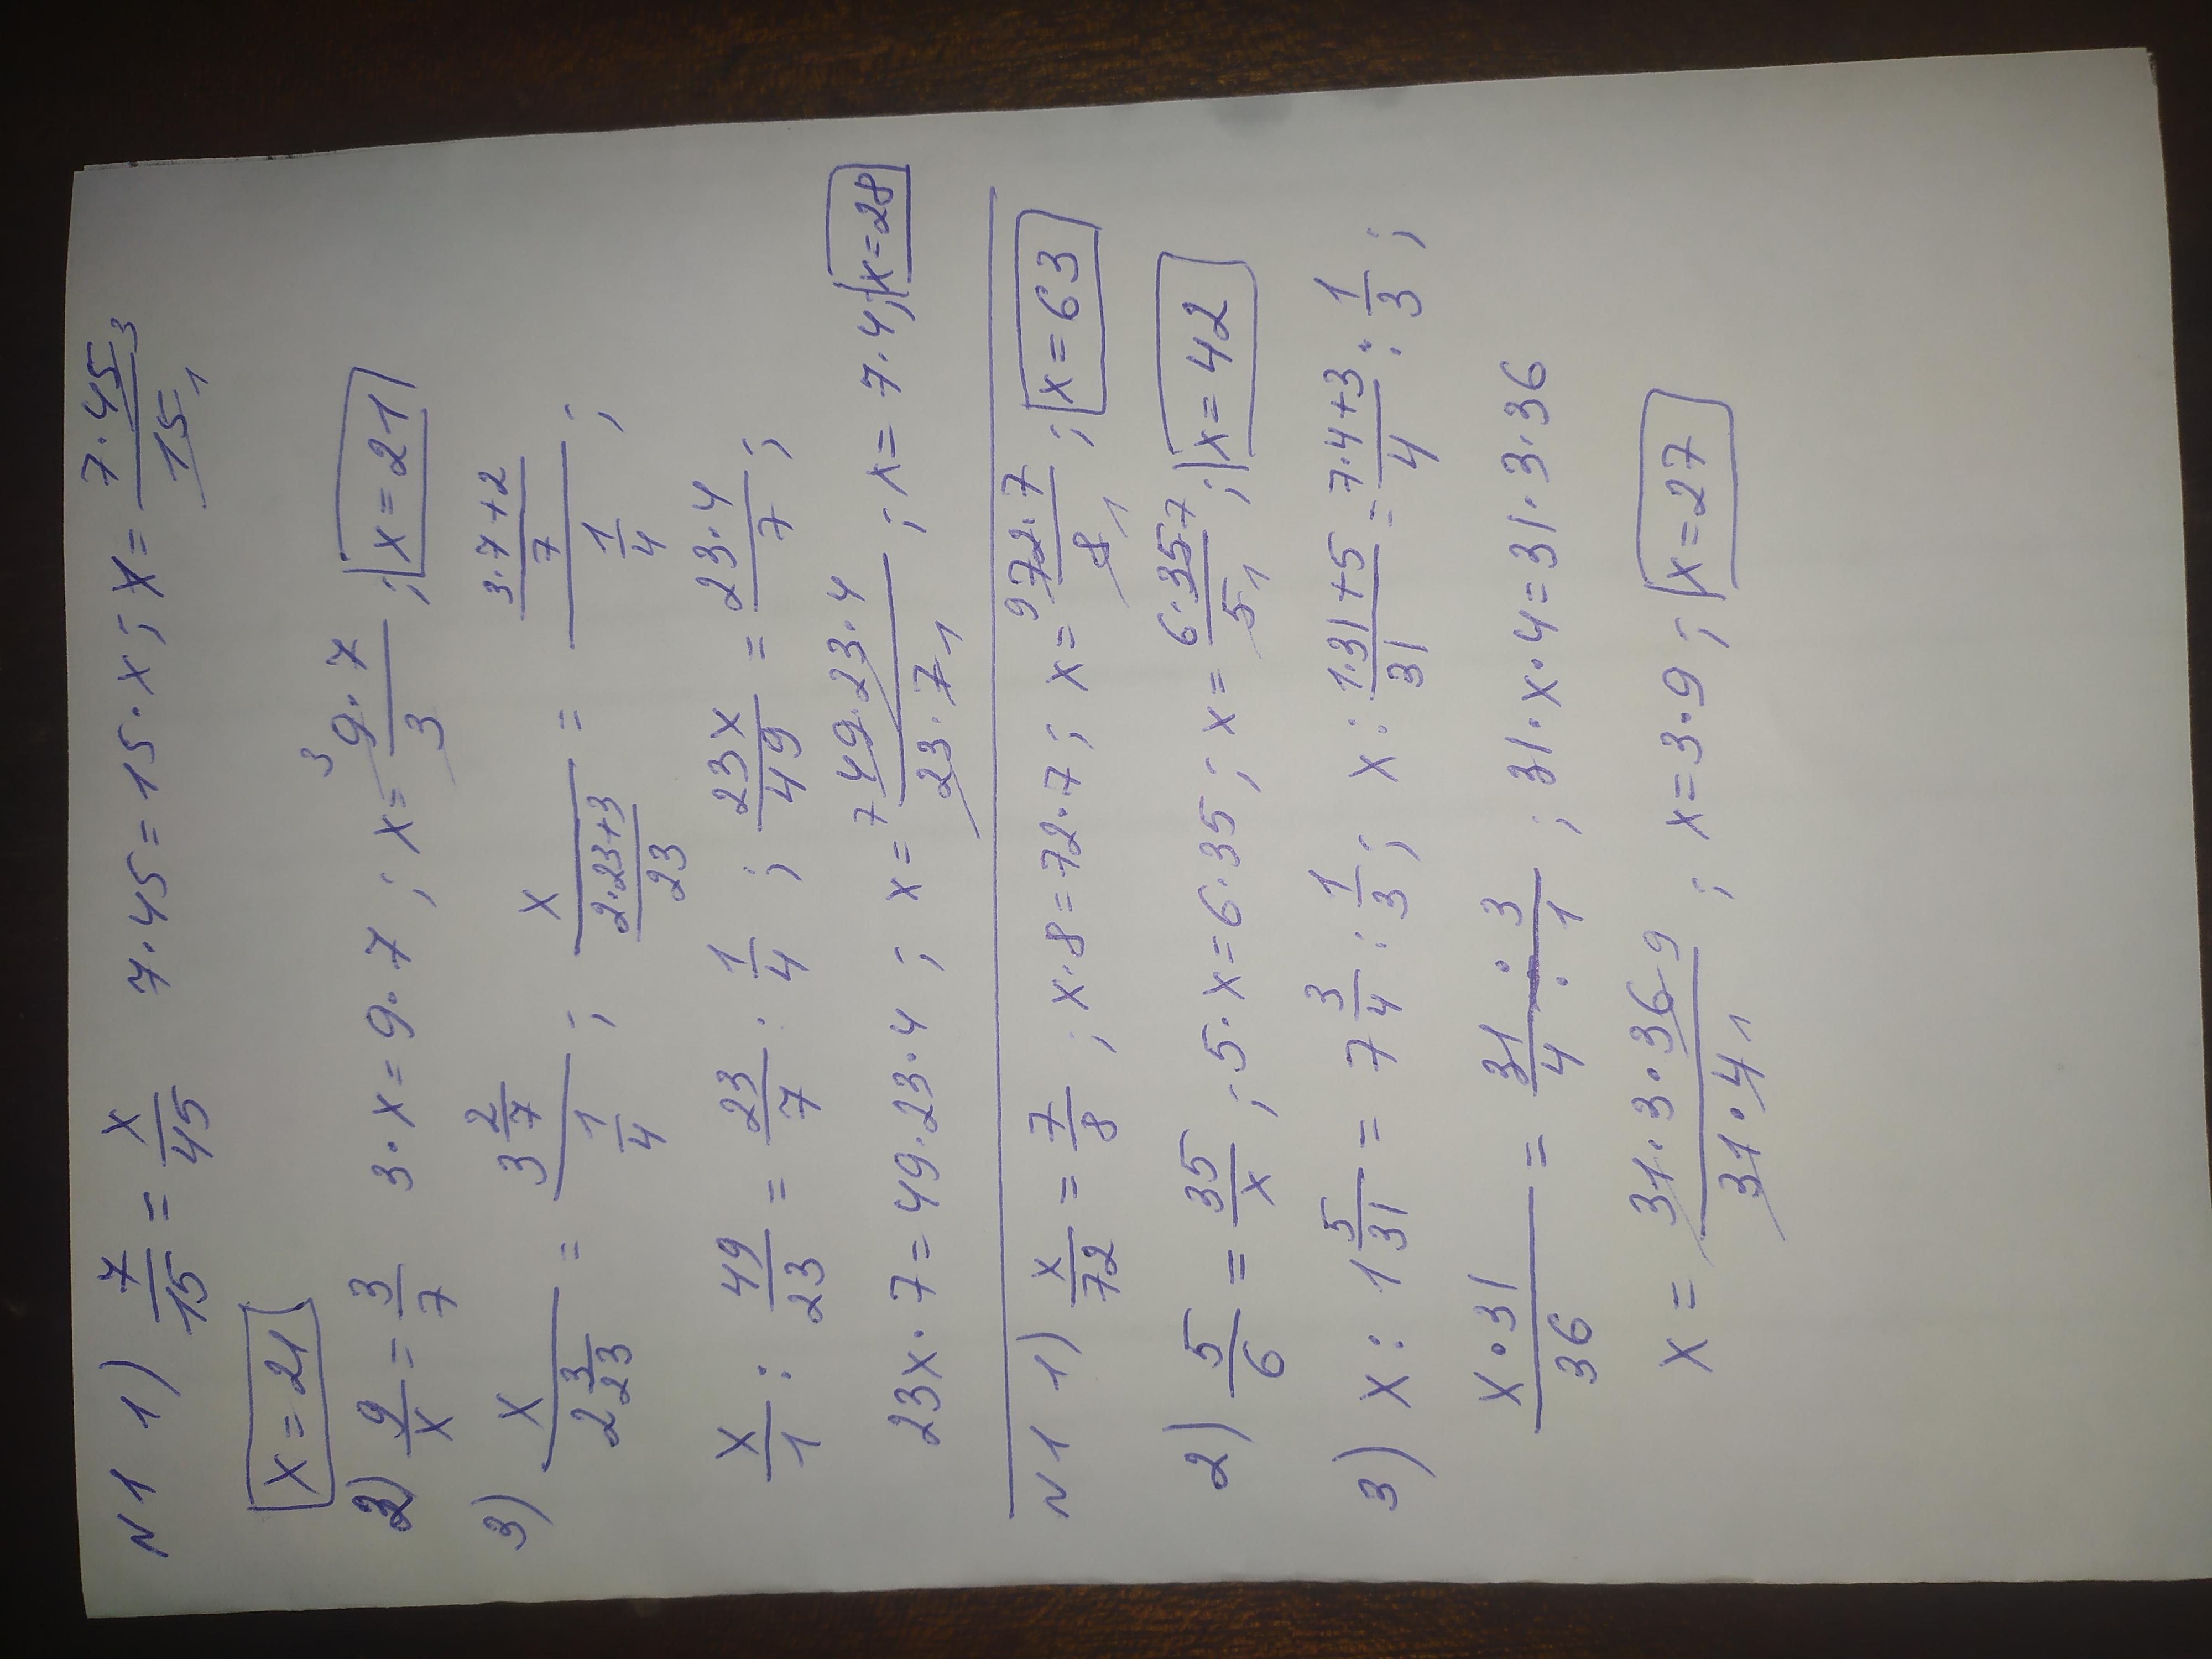 N 1 1) 7/15 = x/45 7·45=15·x; x= 7·45 3/15 1
x=21
2) 9/x = 3/7 3·x=9·7; x= 3 9·7/3; x=21
3) x/(2 3/23) = (3 2/7)/(1/4); x/((2·23+3)/23) = ((3·7+2)/7)/(1/4);
x/1 : 49/23 = 23/7 : 1/4; 23x/49 = 23·4/7;
23x·7=49·23·4; x= 7 49·23·4/23·7 1; x=7·4; x=28
N 1 1) x/72 = 7/8; x·8=72·7; x= 9 72·7/8 1; x=63
2) 5/6 = 35/x; 5·x=6·35; x= 6·35 7/5 1; x=42
3) x : 1 5/31 = 7 3/4 : 1/3; x : (1·31+5)/31 = (7·4+3)/4 : 1/3;
x·31/36 = 31/4 : 3/1; 31·x·4=31·3·36
x = 31·3·36 9/31·4 1; x=3·9; x=27